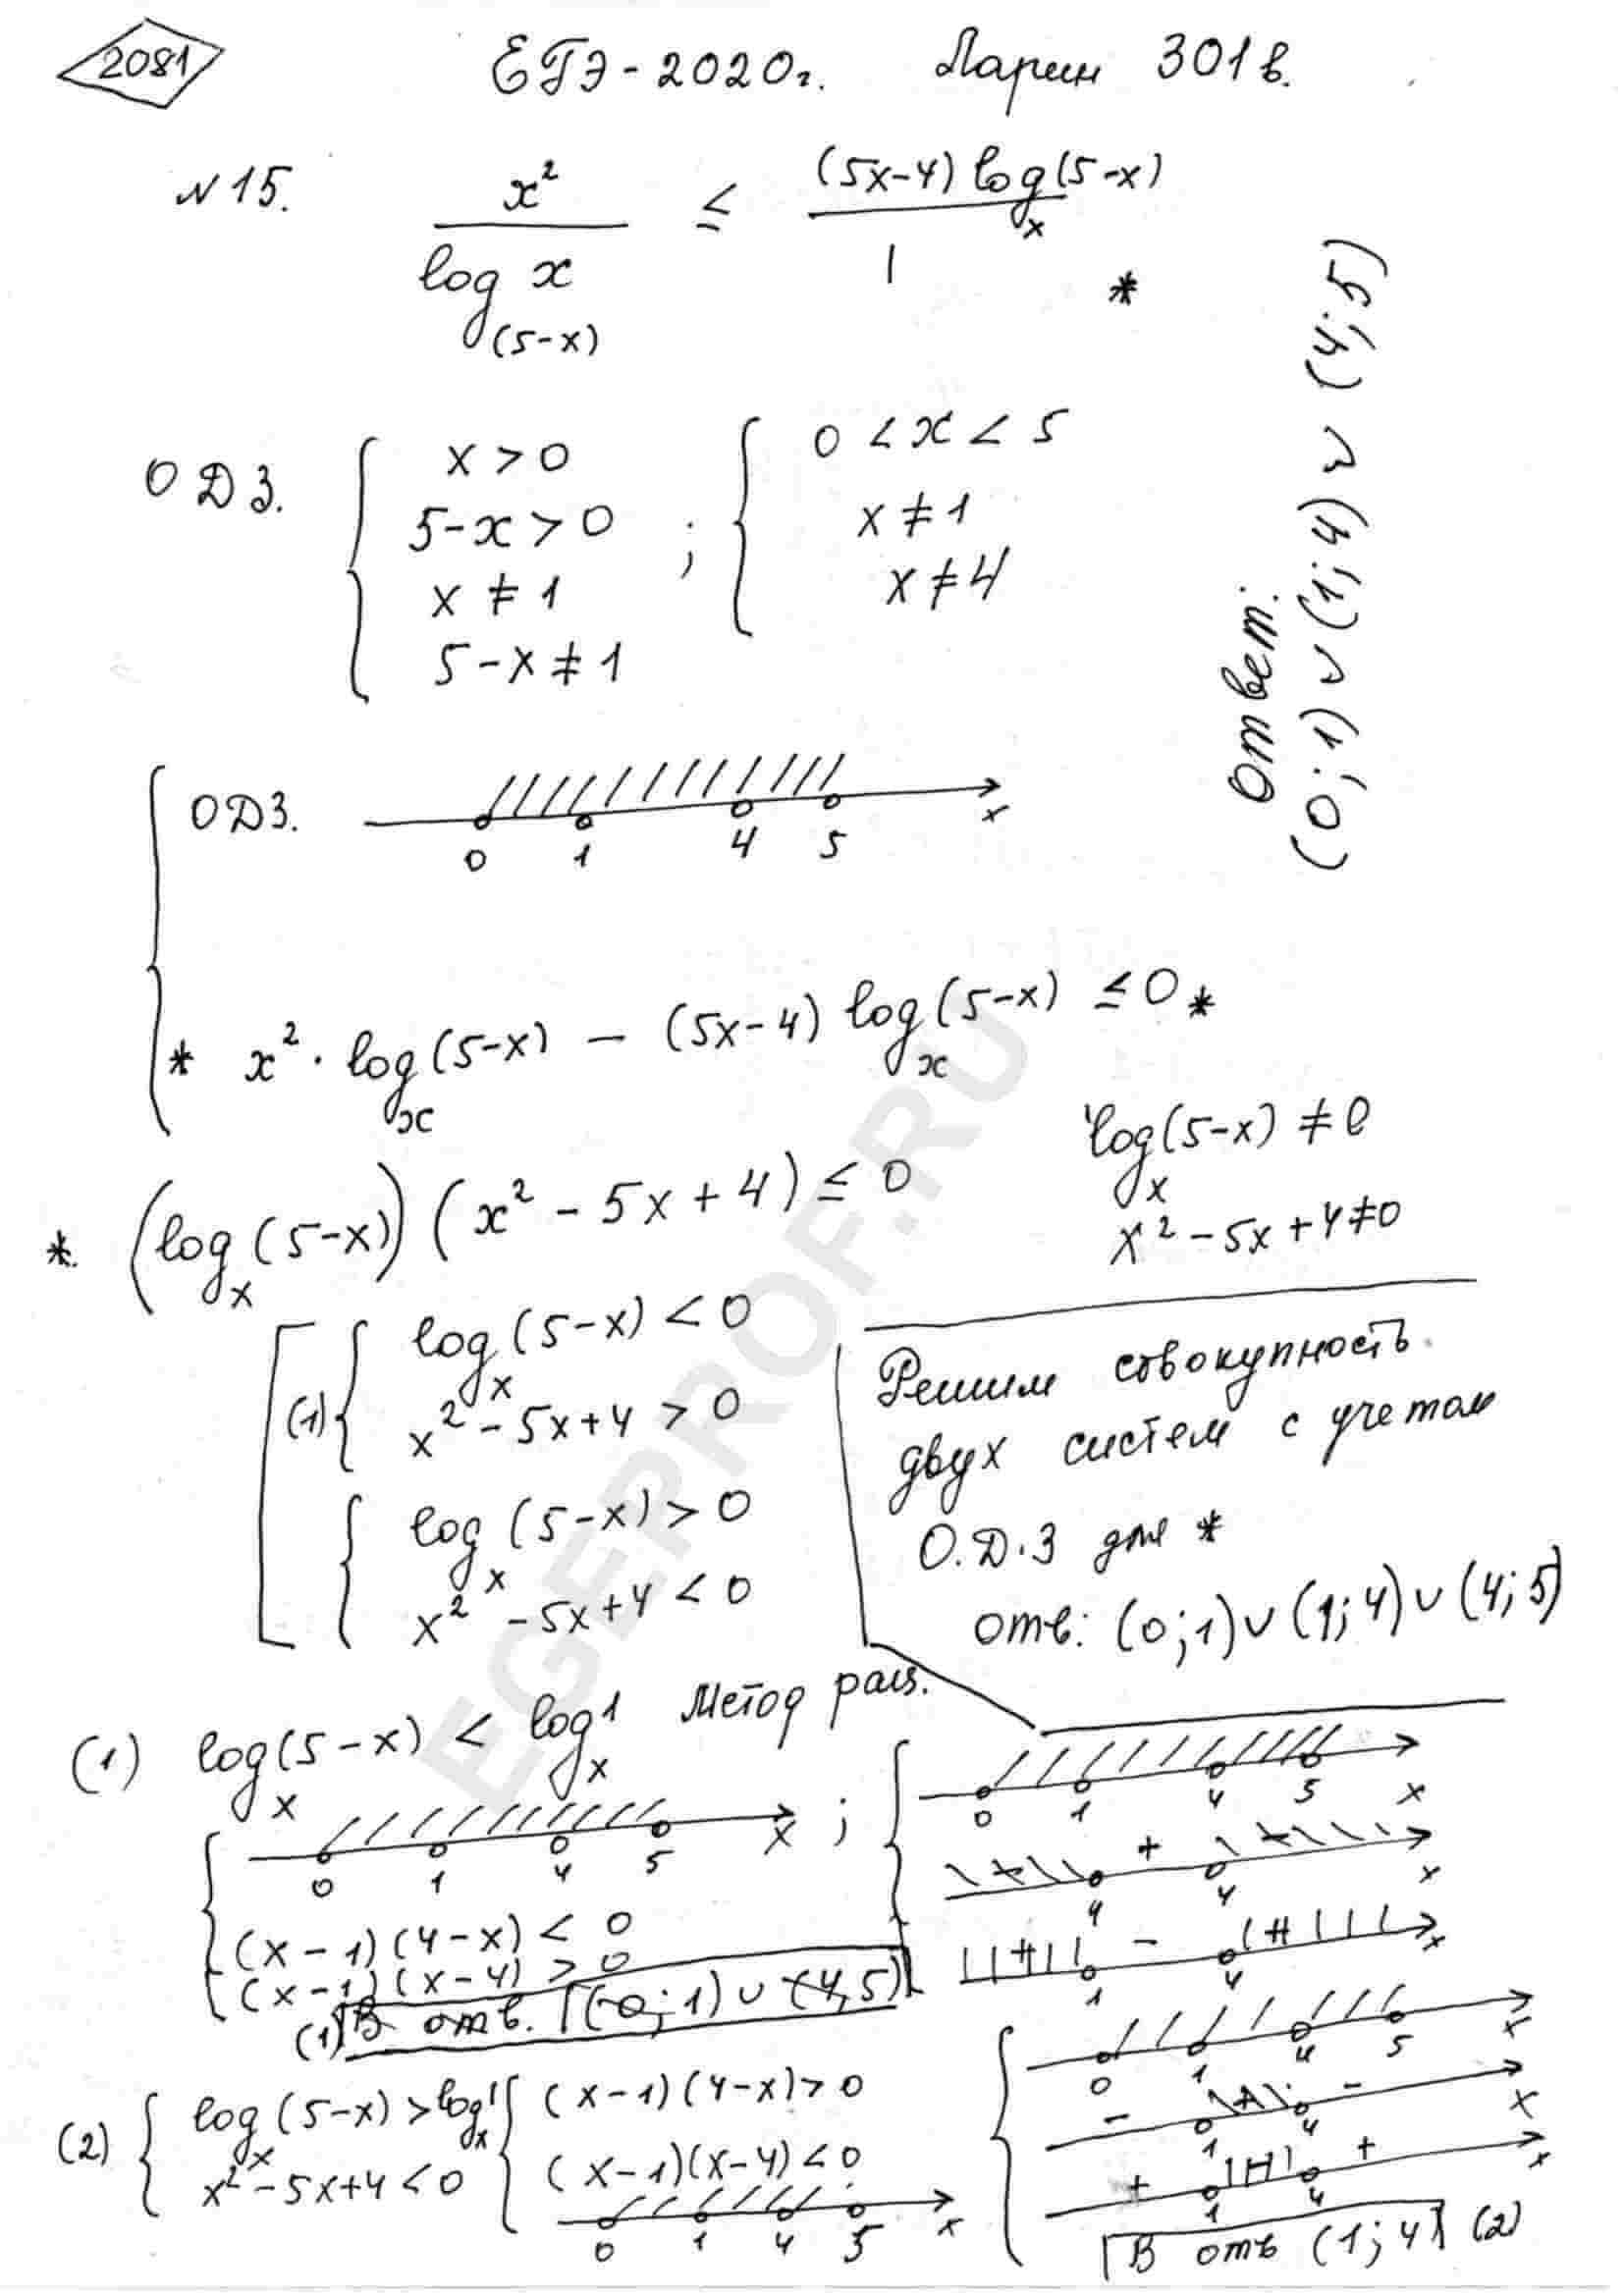 2081 ЕГЭ-2020г. Ларин 301в.
N15. x² / log_(5-x) x ≤ (5x-4) log_x (5-x) / 1 *
ОДЗ. { x > 0 ; { 0 < x < 5
5-x > 0 x ≠ 1
x ≠ 1 x ≠ 4
5-x ≠ 1
Ответ:
(0;1) ∪ (1;4) ∪ (4;5)
ОДЗ. 0 1 4 5 x
* x² · log_x (5-x) - (5x-4) log_x (5-x) ≤ 0 *
*. (log_x (5-x)) (x² - 5x + 4) ≤ 0
log_x (5-x) ≠ 0
x² - 5x + 4 ≠ 0
(1) { log_x (5-x) < 0
x² - 5x + 4 > 0
{ log_x (5-x) > 0
x² - 5x + 4 < 0
Решим совокупность
двух систем с учетом
О.Д.З для *
отв: (0;1) ∪ (1;4) ∪ (4;5)
(1) log_x (5-x) < log_x 1 Метод рац.
0 1 4 5 x ;
(x-1)(4-x) < 0
(x-1)(x-4) > 0
(1) В отв. (0;1) ∪ (4,5)
0 1 4 5 x
+ 4 4 x
1 - 4 x
(2) { log_x (5-x) > log_x 1 { (x-1)(4-x) > 0
x² - 5x + 4 < 0 (x-1)(x-4) < 0
0 1 4 5 x
0 1 4 5 x
- 1 4 - x
+ 1 4 + x
В отв (1;4) (2)
EGEPROF.RU